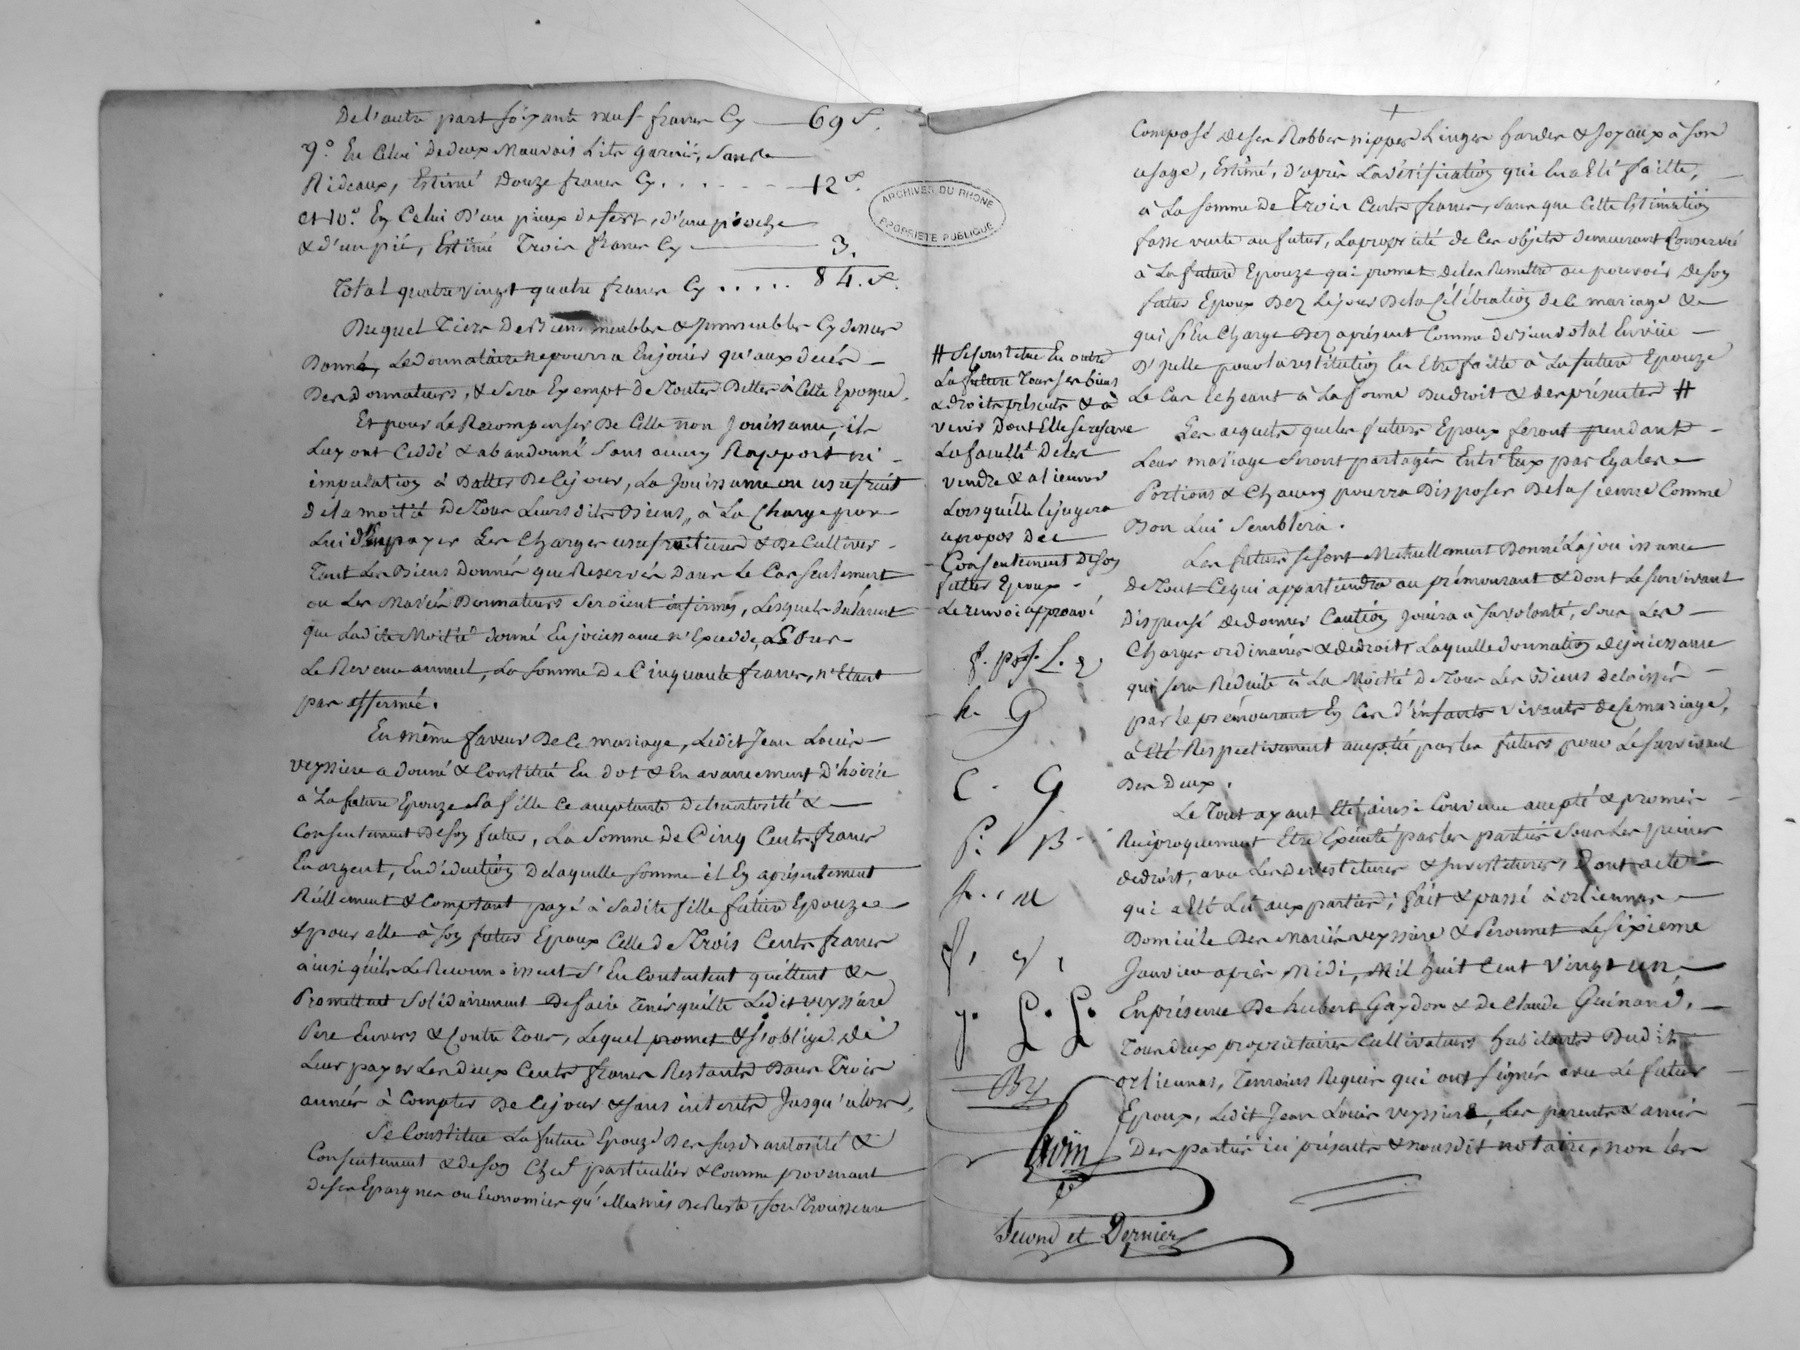 De l'autre part soixante neuf francs Cy — 69 f.
9.° En Celui de deux Mauvais Lits garnis, sans
Rideaux, Estimé Douze francs Cy . . . . 12 f.
et 10.° En Celui D'un pieux de fert, d'une pioche
& d'un pié, Estimé Trois francs Cy — 3.
Total quatre vingt quatre francs Cy . . . . . 84. f.
Duquel Tiers De Biens meubles & Immeubles Cy dessus
Donné, Le donnataire ne pourra En jouir qu'aux decés
Des donnateurs, & Sera Exempt de Toutes Dettes à Cette Epoque.
Et pour Le Recompenser De Cette non Jouissance, ils
Luy ont Ceddé & abandonné Sans aucun Rapport ni
imputation à Datter De Ce jour, La Jouissance ou usufruit
de la moitié De Tous Leurs dits Biens, à La Charge par
Lui d'En payer Les Charges usufruitieres & De Cultiver
Tant Les Biens Donnés que Reservés Dans Le Cas seulement
ou Les Mariés Donnateurs Seroient infirmes, Lesquels Déclarent
que Ladite Moitié donné En jouissance n'Excedde,
Le Revenu annuel, La Somme De Cinquante francs, n'Etant
pas affermé.
En même faveur De Ce mariage, Ledit Jean Louis
veyssiere a donné & Constitué En dot & En avancement D'hoirie
à La future Epouze Sa fille Ce acceptante De Son autorité &
Consentement De Son futur, La Somme de Cinq Cents francs
En argent, En déduction De laquelle Somme il En a présentement
Réellement & Comptant payé à Sadite fille future Epouze
& pour elle à Son futur Epoux Celle de Trois Cents francs
ainsi qu'ils Le Reconnoissent S'En Contentent quittent &
Promettent Solidairement De faire Tenir quitte Ledit veyssiere
Pere Envers & Contre Tous, Lequel promet & s'oblige De
Leur payer Les Deux Cents francs Restants Dans Trois
années à Compter De Ce jour & Sans interets Jusqu'alors.
Se Constitue La future Epouze Des Susdits autorité &
Consentement & De Son Chef particulier & Comme provenant
de Ses Epargnes ou Economies qu'elle a mis De Reste, Son Trousseau
ARCHIVES DU RHONE
PROPRIETE PUBLIQUE
Composé de Ses Robbes nippes Linges hardes & Joyaux à Son
usage, Estimé, d'après La vérification qui En a Eté faitte,
à La Somme De Trois Cents francs, Sans que Cette Estimation
fasse vente au futur, La propriété de Ces objets demeurant Conservée
à La future Epouze qui promet De Les Remettre au pouvoir De Son
futur Epoux Dez Le jour De la Célébration de Ce mariage &
qui s'En Charge Dez aprésent Comme de Biens dotal Envers
D'Icelle pour La restitution En Etre faitte à La future Epouze
Le Cas Echeant à La forme Du droit & des présentes #
Les acquets que Les futurs Epoux feront pendant
Leur mariage Seront partagés Entr'Eux par Egales
Portions & Chacun pourra Disposer De La Sienne Comme
Bon Lui Semblera.
Les futurs se sont Mutuellement Donné La jouissance
de Tout Ce qui appartiendra au prémourant & dont Le Survivant
Dispensé de donner Caution jouira à Sa volonté, Sous Les
Charges ordinaires & de droit, Laquelle donnation de jouissance
qui Sera Réduite à La Moitié de Tous Les Biens delaissés
par Le prémourant En Cas d'Enfants vivants de Ce mariage,
à Eté Respectivement acceptée par Les futurs pour Le Survivant
Des Deux.
Le Tout ayant Eté ainsi Convenu accepté & promis
Réciproquement Etre Exécuté par Les parties Sous Les peines
de droit, avec Les Devestitures & Investitures, Dont acte
qui a Eté Lu aux parties; fait & passé à orliennas
Domicile Des Mariés veyssiere & Peronnet Le Sixieme
Janvier après Midi, Mil huit Cent Vingt un,
En présence De hubert Gaydon & de Claude Guinand,
Tous deux propriétaires Cultivateurs habitants Dudit
orliennas, Temoins Requis qui ont signés avec Le futur
Epoux, Ledit Jean Louis veyssiere, Les parents & amis
Des parties ici présents & nous dit notaire, non Les
# Se Constitue En outre
La future Tous Ses biens
& droits présents & à
venir Dont Elle Se reserve
La faculté De Les
vendre & aliener
Lorsqu'Elle Le jugera
apropos De
Consentement De Son
futur Epoux.
Le renvoi approuvé
h. G
C. G
P. B
h. M
f. V.
J. L. L.
Second et Dernier